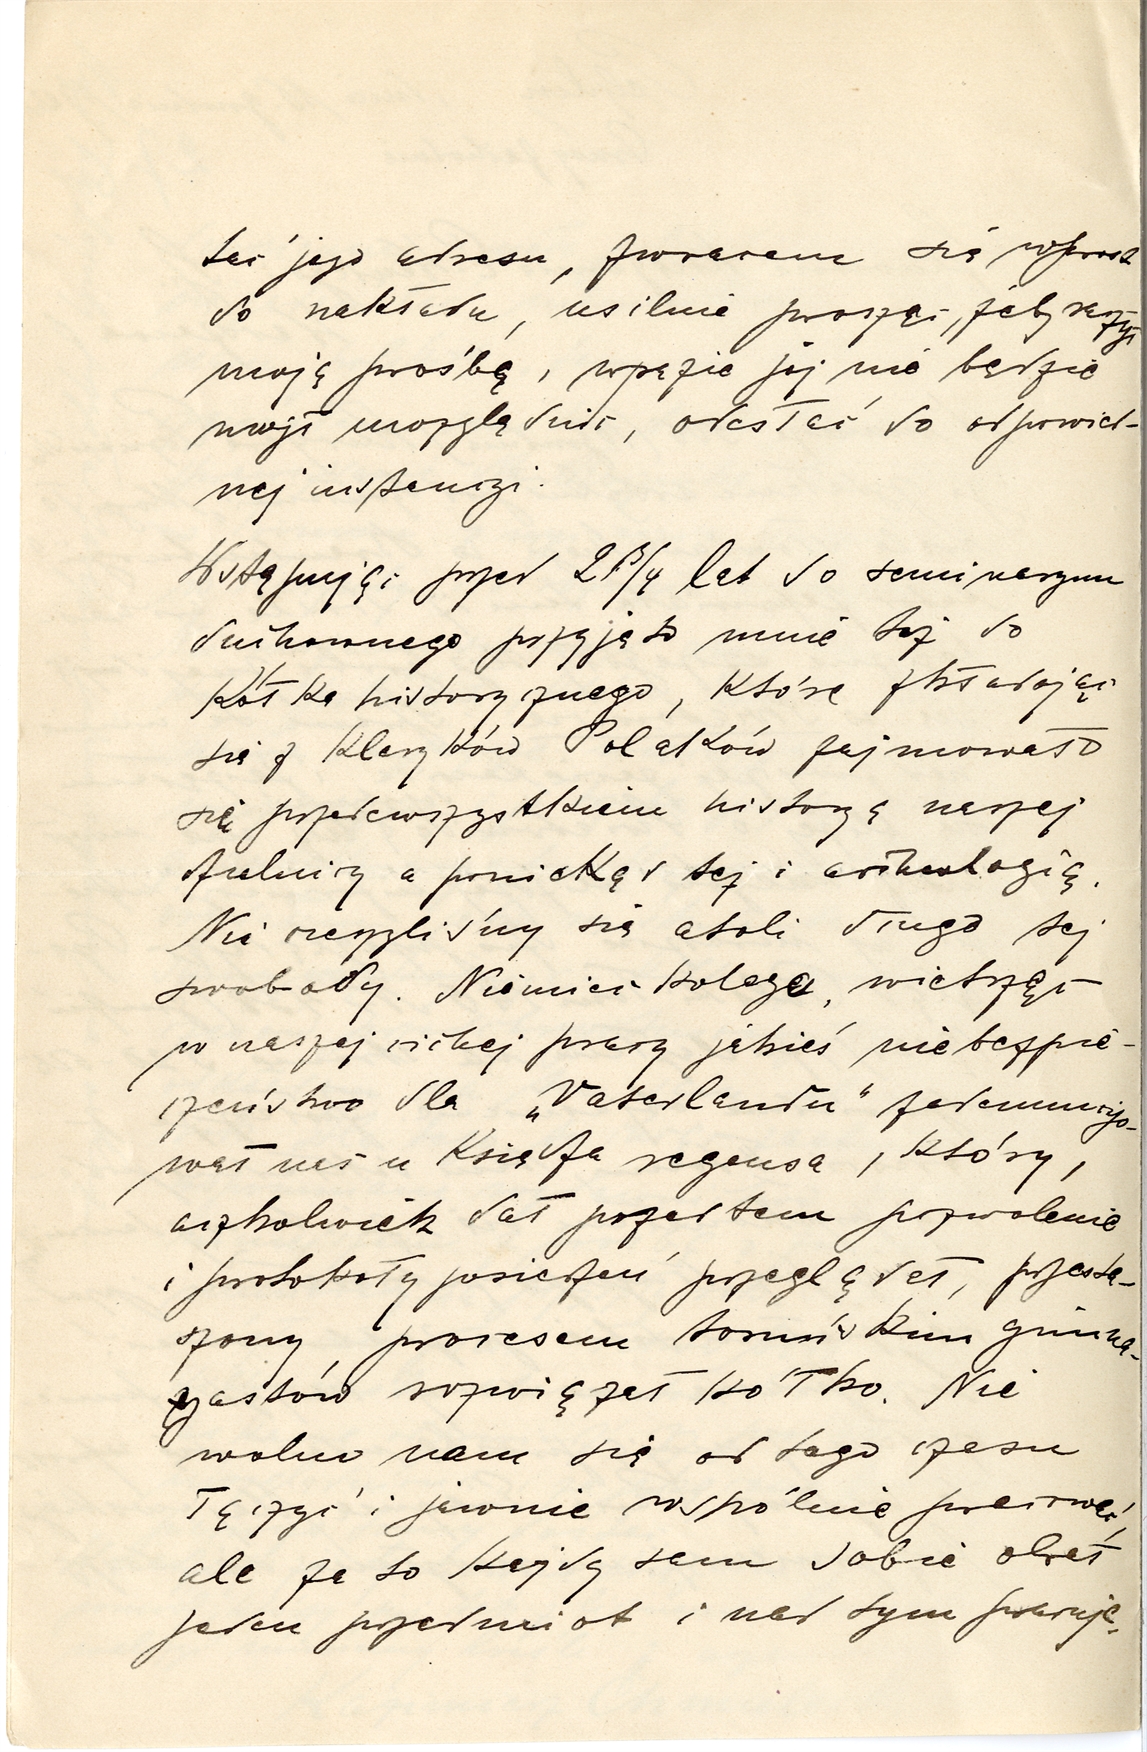 tać jego adresu, zwracam się wprost
do nakładu, usilnie prosząc, żeby raczył
moją prośbę, wrazie jej nie będzie
mógł uwzględnić, odesłać do odpowied-
nej instancyi.
Wstępując przed 2 3/4 lat do seminaryum
duchownego przyjęto mnie też do
Kółka historycznego, które składając
się z Kleryków Polaków zajmowało
się przedewszystkiem historyą naszej
dzielnicy a poniekąd też i archeologią.
Nie cieszyliśmy się atoli długo tej
swobody. Niemiec kolega, wietrząc
w naszej cichej pracy jakieś niebezpie-
czeństwo dla „Vaterlandu“ zadenuncyo-
wał nas u Księdza regensa, który,
aczkolwiek dał przedtem pozwolenie
i protokoły posiedzeń przeglądał, przestra-
szony procesem toruńskim gimna-
zyastów rozwiązał kółko. Nie
wolno nam się od tego czasu
łączyć i jawnie wspólnie pracować,
ale za to każdy sam sobie obrał
jeden przedmiot i nad tym pracuje.